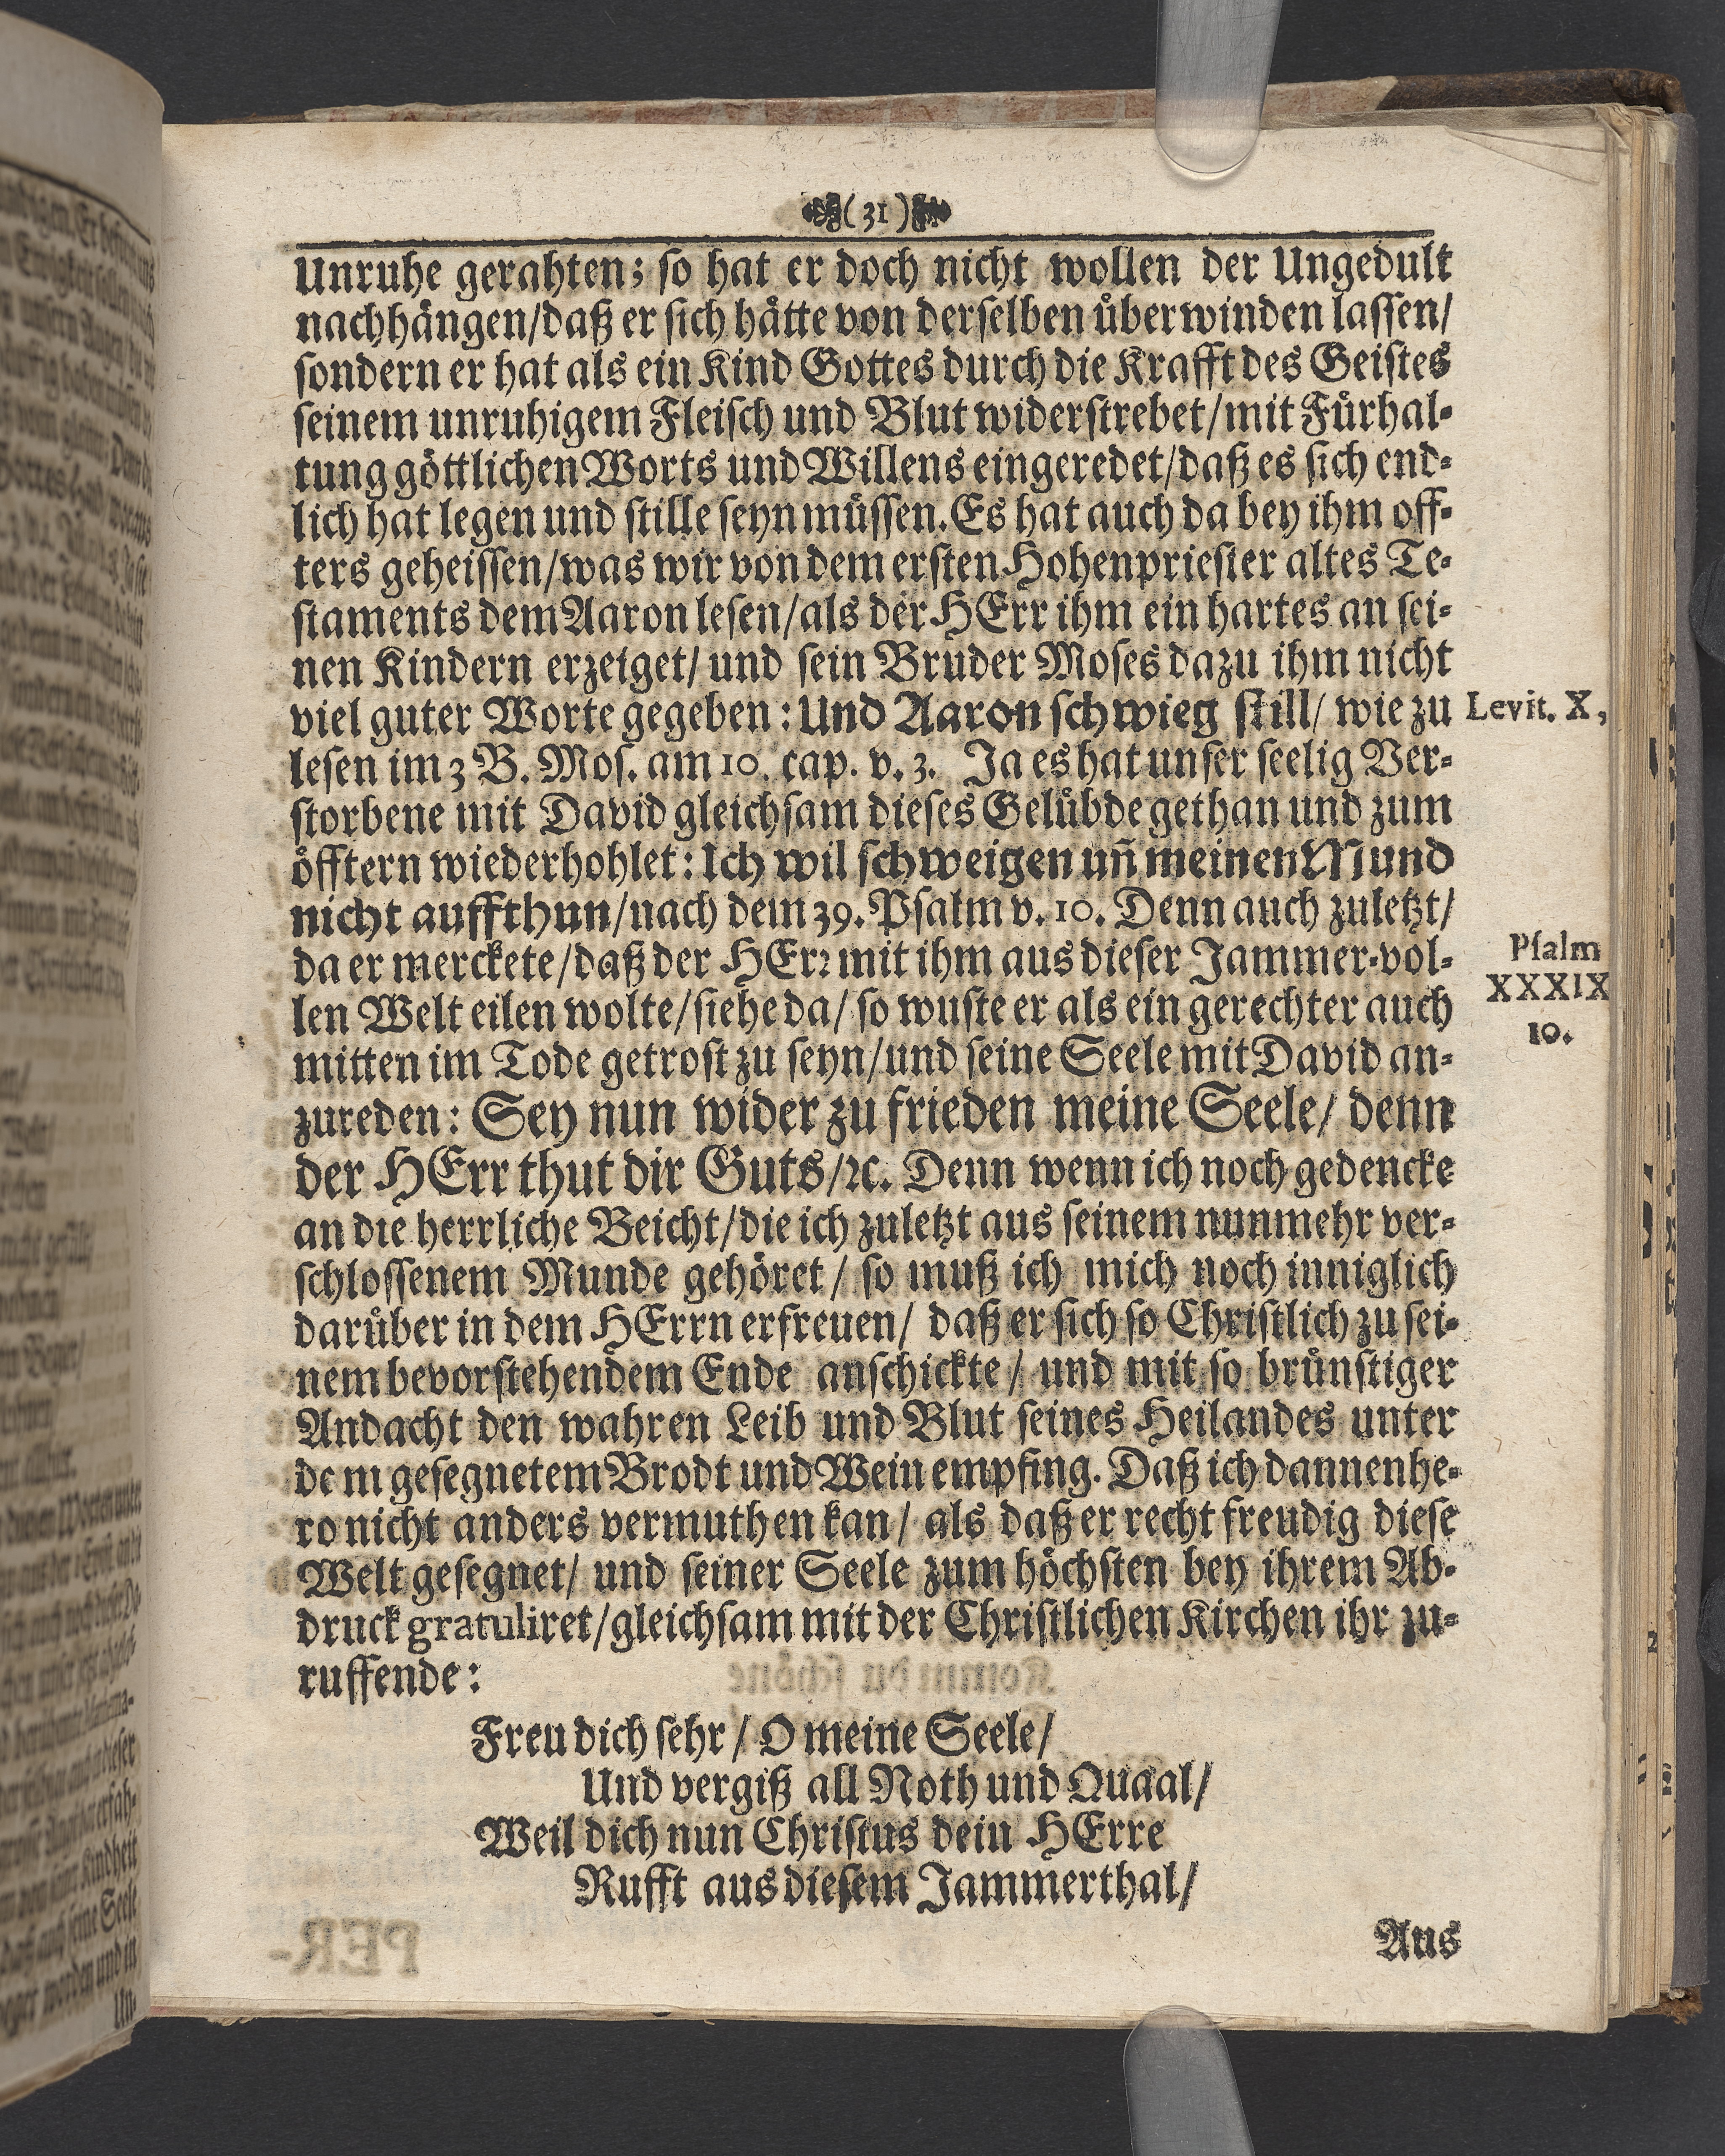 (31)
Unruhe gerahten; so hat er doch nicht wollen der Ungedult
nachhängen/daß er sich hätte von derselben überwinden lassen/
sondern er hat als ein Kind Gottes durch die Krafft des Geistes
seinem unruhigem Fleisch und Blut widerstrebet/mit Fürhal-
tung göttlichen Worts und Willens eingeredet/daß es sich end-
lich hat legen und stille seyn müssen. Es hat auch da bey ihm off-
ters geheissen/was wir von dem ersten Hohenpriester altes Te-
staments dem Aaron lesen/als der HErr ihm ein hartes an sei-
nen Kindern erzeiget/ und sein Bruder Moses dazu ihm nicht
viel guter Worte gegeben: Und Aaron schwieg still/ wie zu
Levit. X,
lesen im 3 B. Mos. am 10. cap. v. 3. Ja es hat unser seelig Ver-
storbene mit David gleichsam dieses Gelübde gethan und zum
öfftern wiederhohlet: Ich wil schweigen uñ meinen Mund
nicht auffthun/nach dem 39. Psalm v. 10. Denn auch zuletzt/
da er merckete/daß der HErr mit ihm aus dieser Jammer-vol-
Psalm
XXXIX
10.
len Welt eilen wolte/siehe da/ so wuste er als ein gerechter auch
mitten im Tode getrost zu seyn/und seine Seele mit David an-
zureden: Sey nun wider zu frieden meine Seele/ denn
der HErr thut dir Guts/ꝛc. Denn wenn ich noch gedencke
an die herrliche Beicht/die ich zuletzt aus seinem nunmehr ver-
schlossenem Munde gehöret/ so muß ich mich noch inniglich
darüber in dem HErrn erfreuen/ daß er sich so Christlich zu sei-
nem bevorstehendem Ende anschickte/ und mit so brünstiger
Andacht den wahren Leib und Blut seines Heilandes unter
dem gesegnetem Brodt und Wein empfing. Daß ich dannenhe-
ro nicht anders vermuthen kan/ als daß er recht freudig diese
Welt gesegnet/ und seiner Seele zum höchsten bey ihrem Ab-
druck gratuliret/gleichsam mit der Christlichen Kirchen ihr zu-
ruffende:
Freu dich sehr/ O meine Seele/
Und vergiß all Noth und Quaal/
Weil dich nun Christus dein HErre
Rufft aus diesem Jammerthal/
Aus